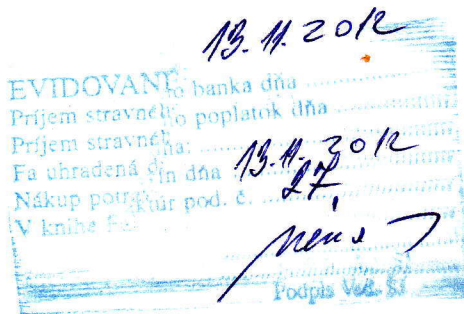 13.11.2012
EVIDOVANÉ:
Príjem stravného banka dňa
Príjem stravného poplatok dňa
Fa uhradená dňa: 13.11.2012
Nákup potravín dňa 27.
V knihe faktúr pod. č.
Podpis Ved. ŠJ